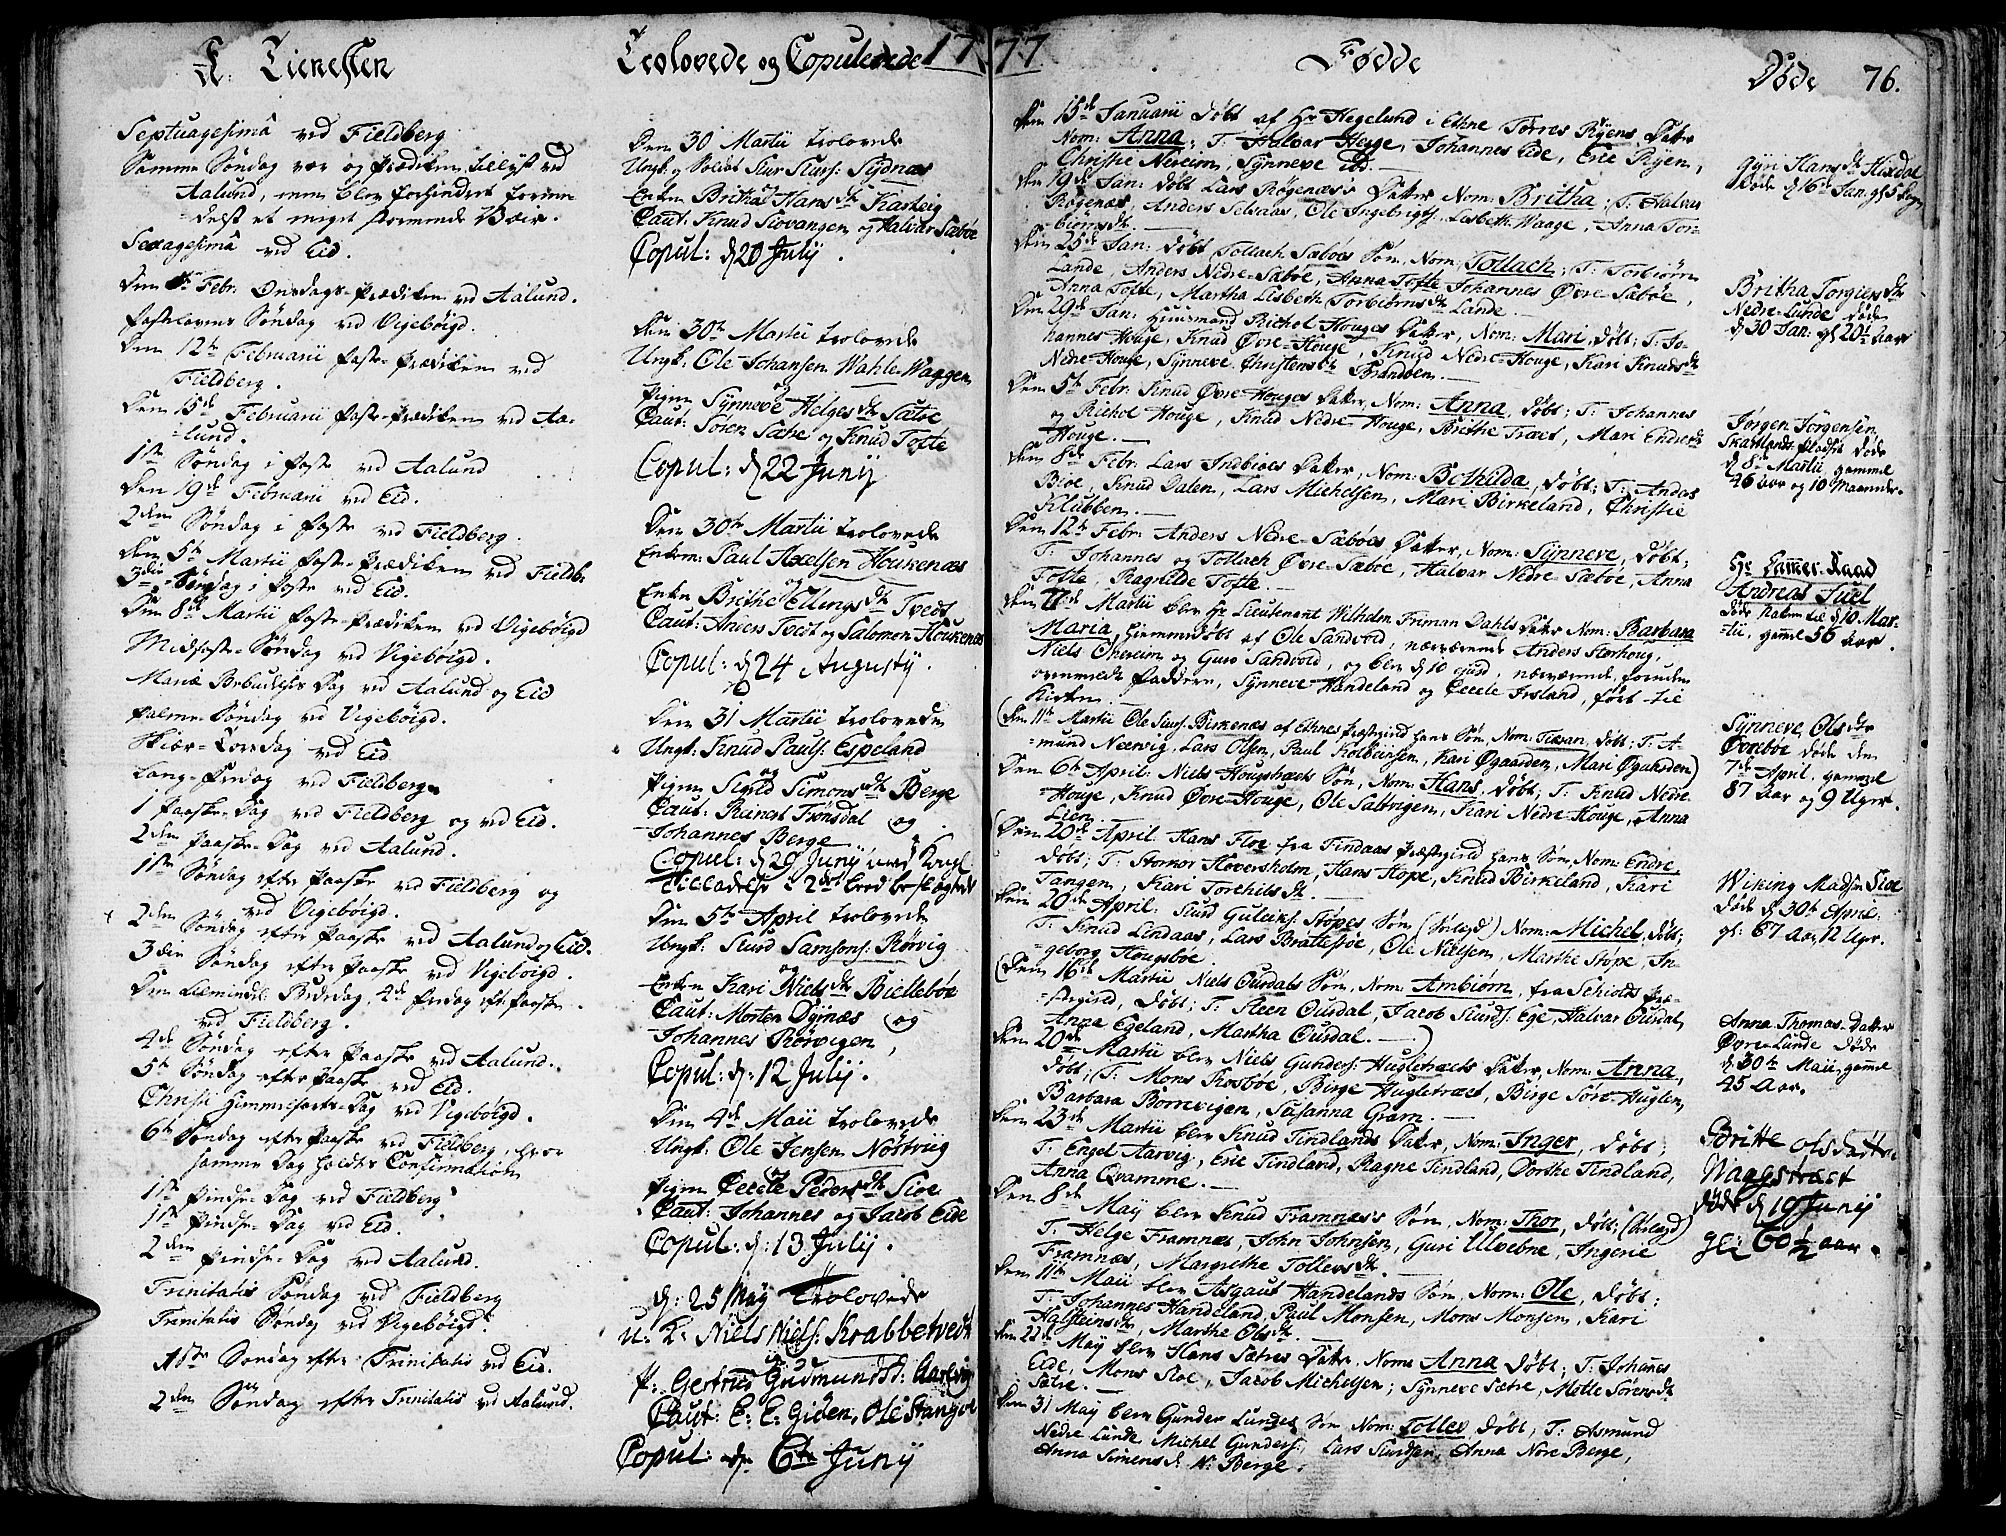 F: Tienesten
Trolovede og Copulerede 1777
Fødde
Døde 76.
Septuagesimâ ved Fieldberg
Samme Søndag var og Prædiken tillyst ved
Aalund, men blev forhindret formedelst et meget stormende Veir.
Sexagesimâ ved Eid.
Den Febr: Onsdags-Prædiken ved Aalund.
Fastelavens Søndag ved Vigebøigd.
Den 12te Februarii Faste-Prædiken ved
Fieldberg.
Den 15de Februarii Faste-Prædiken ved Aa-
lund.
1ste Søndag i Faste ved Aalund
Den 19de Februarii ved Eid.
2den Søndag i Faste ved Fieldberg.
Den 5te Martii Faste-Prædiken ved Fieldb.
3die Søndag i Faste ved Eid.
Den 8de Martii Faste-Prædiken ved Vigebøigd
Midfaste-Søndag ved Vigebøigd.
Mariæ Bebudelses Dag ved Aalund og Eid
Palme-Søndag ved Vigebøigd.
Skiær-Torsdag ved Eid
Lang-Fredag ved Fieldberg
1 Paaske-Dag ved Fieldberg og ved Eid.
2den Paaske-Dag ved Aalund.
1ste Søndag efter Paaske ved Fieldberg og
ved Vigebøigd.
2den Søndag efter Paaske ved Aalund og Eid.
3die Søndag efter Paaske ved Vigebøigd.
Den almindel: Bededag, 4de Fredag eft: Paaske.
ved Fieldberg.
4de Søndag efter Paaske ved Aalund.
5te Søndag efter Paaske ved Eid.
Christi Himmelfarts-Dag ved Vigebøigd.
6te Søndag efter Paaske ved Fieldberg, hvor
samme Dag holdtes Confirmation
1ste Pindse-Dag ved Fieldberg
1ste Pindse-Dag ved Eid.
2den Pindse-Dag ved Aalund.
Trinitatis Søndag ved Fieldberg
Trinitatis Søndag ved Vigebøigd.
1ste Søndag efter Trinitatis ved Eid.
2den Søndag efter Trinitatis ved Aalund.
Den 30 Martii trolovede
Ungk: og Soldat Siur Siurs: Sydnæs
Enken Britha Hansdtr Karberg
Caut: Knud Siovangen og Halvar Sæbøe
Copul: d 20 July.
Den 30te Martii trolovede
Ungk: Ole Johansen Wahle-Waggen
og
Pigen Synneve Helgesdtr Sætre
Caut: Soren Sætre og Knud Tofte
Copul: d 22 Junij
Den 30te Martii trolovede
Enkem: Paul Axelsen Houkenæs
og
Enken Brithe Ellingsdtr Tvedt
Caut: Anders Tvedt og Salomon Houkenæs
Copul: d 24 Augustij.
Den 31 Martii trolovede
Ungk: Knud Pauls: Espeland
og
Pigen Sigrid Simonsdtr Berge
Caut: Rangel Frønsdal og
Johannes Berge
Copul: d 29 Junij med Kongl
Tilladelse i 2det Leed beslægtede
Den 5te April trolovede
Ungk: Siurd Samsons: Rørvig
og
Enken Kari Nielsdtr Biellebøe
Caut: Morten Dyrnæs og
Johannes Rørvigen,
Copul: d: 12 Julij.
Den 4de Maii trolovede
Ungk: Ole Jensen Nøstvig
og
Pigen Cecele Pedersdtr Sioe
Caut: Johannes og Jacob Eide
Copul: d: 13 Julij.
d: 25 May Trolovede
U: K: Niels Niels: Krabbetvedt
og
P: Gertrud Gudmundsd: Aarevig
Caut: E: E: Giøen, Ole Stangel
Copul: d 6te Junij
Den 15de Januarii døbt af Hr Hegelund i Ethne Torres Ryens Datter
Nom: Anna; T: Halvar Hegge, Johannes Eide, Eric Ryen,
Christie Nereim, Synneve Eid.
Den 19de Jan: døbt Lars Røgenæs's Datter Nom: Britha; T: Halvar
Røgenæs, Anders Selvaas, Ole Ingebrigts, Lisbeth Waage, Anna Tor-
biørnsdtr.
Den 25de Jan: døbt Tollach Sæbøes Søn, Nom: Tollach; T: Torbiørn
Lande, Anders Nedre-Sæbøe, Anna Tofte Johannes Øvre-Sæbøe,
Anna Tofte, Martha Lisbeth Torbiørnsdtr Lande.
Den 29de Jan: Huusmand Richol Houges Datter, Nom: Mari, døbt; T: Jo-
hannes Houge, Knud Øvre-Houge, Knud Nedre-Houge, Kari Knudsdtr
Nedre-Houge, Synneve Christensdtr Brandven.
Den 5te Febr: Knud Øvre-Houges Datter, Nom: Anna, døbt; T: Johannes
og Richol Houge, Knud Nedre-Houge, Brithe Træet, Mari Endresdtr
Houge.
Den 8de Febr: Lars Indbioes Datter, Nom: Bothilda, døbt; T: Andas
Bioe, Knud Dalen, Lars Michelsen, Mari Birkeland, Christie
Klubben.
Den 12te Febr: Anders Nedre-Sæbøes Datter, Nom: Synneve, døbt;
T: Johannes og Tollach Øvre-Sæbøe, Halvar Nedre-Sæbøe, Anna
Tofte, Ragnilde Tofte.
Den Martii blev Hr Lieutenant Wilhelm Friman Dahls Datter Nom: Barbara
Maria, hiemmedøbt af Ole Sandvold, nærværende Anders Storhoug,
Niels Opereim og Guro Sandvold, og blev d 10 ejusd, nærværende, foruden
ovenmelte Faddere, Synneve Handeland og Cecele Irsland, ført til
Kirken.
(Den 11te Martii Ole Siurs: Birkenæs af Ethnes Præstegield hans Søn, Nom: Tiran, døbt; T: A-
mund Neervig, Lars Olsen, Paul Kolbeinsen, Kari Øgaarden, Mari Øgaarden)
Den 6te April: Niels Hougstræts Søn, Nom: Hans, døbt; T: Knud Nedre
Houge, Knud Øvre-Houge, Ole Sætrigen, Kari Nedre Houge, Anna
Lien.
(Den 20de April Hans Floe fra Findaas Præstegield hans Søn, Nom: Endre,
døbt; T: Stomor Hoversholm, Hans Hope, Knud Birkeland, Kari
Tangen, Kari Torchilsdtr.
Den 20de April: Siurd Guleiks: Støpes Søn, (Uægte) Nom: Michel, døbt;
T: Knud Lindaas, Lars Brattestøe, Ole Nielsen, Marthe Støpe, In-
geborg Hougsboe.
(Den 16de Martii Niels Ousdals Søn, Nom: Ambiørn, fra Schiolds Præ-
stegield, døbt; T: Steen Ousdal, Jacob Siurds: Ege, Halvar Ousdal,
Anna Egeland, Martha Ousdal.)
Den 20de Martii blev Niels Gunders: Hugletræets Datter, Nom: Anna,
døbt; T: Mons Rosbøe, Birge Hugletræet, Birge Søre-Huglen,
Barbara Borrevigen, Susanna Gram.
Den 23de Martii blev Knud Tindlands Datter, Nom: Inger, døbt;
T: Engel Aarvig, Eric Tindland, Ragne Tindland, Dorthe Tindland,
Anna Qvamme.
Den 8de May blev Knud Framnæs's Søn, Nom: Thor, døbt; (Uægte)
T: Helge Framnæs, John Johnsen, Guri Ulvebne, Ingerie
Framnæs, Margrethe Tollevsdtr.
Den 11te Maii blev Asgaut Handelands Søn, Nom: Ole, døbt;
T: Johannes Handeland, Paul Monsen, Mons Monsen, Kari
Halsteinsdtr, Marthe Olsdtr.
Den 22de May blev Hans Sætres Datter, Nom: Anna døbt; T: Johanes
Eide, Mons Sioe, Jacob Michelsen; Synneve Sætre, Motte Sørensdtr
Sætre.
Den 31 May blev Gunder Lundes Søn, Nom: Tollev døbt, T: Asmund
Nedre Lunde Michel Gunders:, Lars Siurdsen, Anna Nore Berge,
Anna Simensd N: Berge.
Gyri Hansdtr Hixdal
døde d 16de Jan: gl 5 Dage
Britha Torgiersdtr
Nedre-Lunde døde
d 30 Jan: gl 20½ Aar
Jørgen Jørgensen
Skartlands-Pladset døde
d 8de Martii, gammel
46 Aar og 10 Maaneder.
Hr Cammer-Raad
Andreas Juel
døde Natten til d 10 Mar-
tii, gamel 56 Aar.
Synneve Olsdtr
Øvrebøe døde den
7de April, gammel
87 Aar og 9 Uger.
Wiking Madsen Sioe
døde d 30te April:
gl: 67 Aar, 12 Uger.
Anna Thomas-Datter
Øvre-Lunde døde
d 30te Maii, gamel
45 Aar.
Britte Olsdatter
Waagstræet
døde d 19 Junij
gl: 60½ aar.